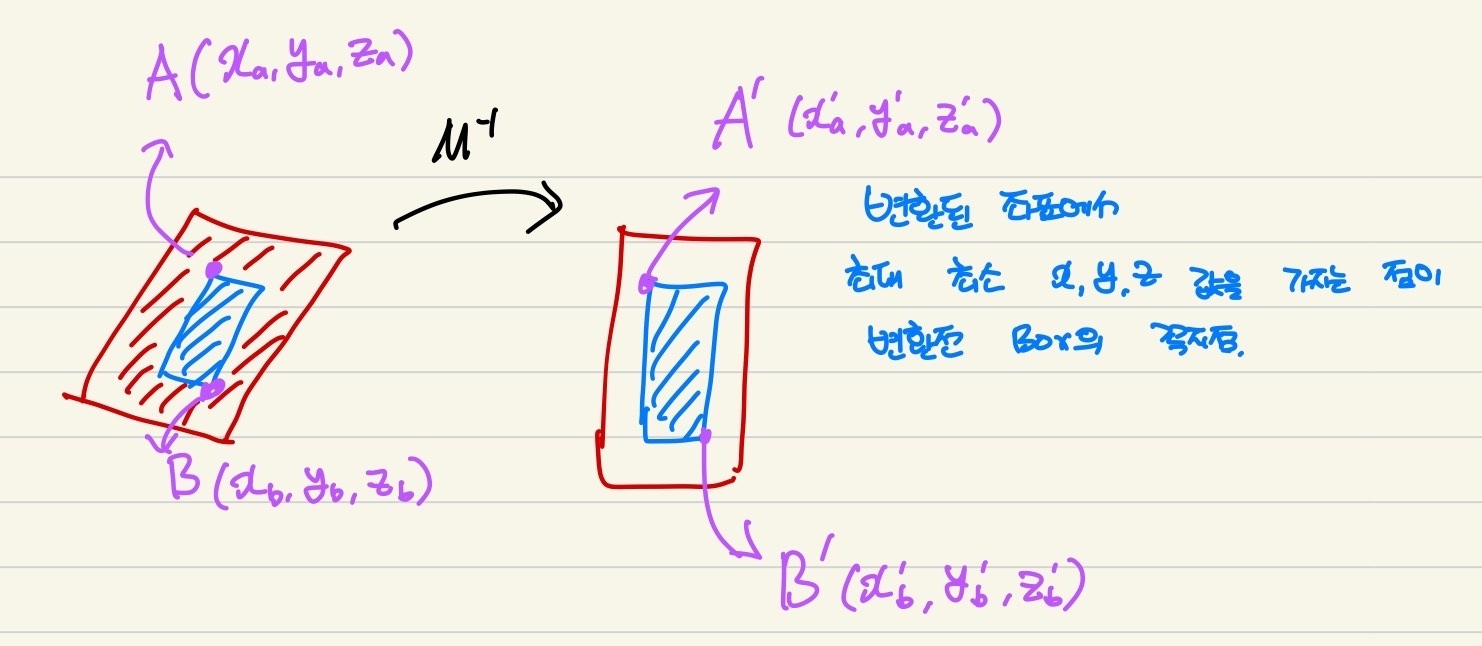 A(xₐ, yₐ, zₐ)
M⁻¹
A′(x′ₐ, y′ₐ, z′ₐ)
변환된 좌표에서
최대 최소 x, y, z 값을 가지는 점이
변환전 Box의 꼭지점.
B(x_b, y_b, z_b)
B′(x′_b, y′_b, z′_b)